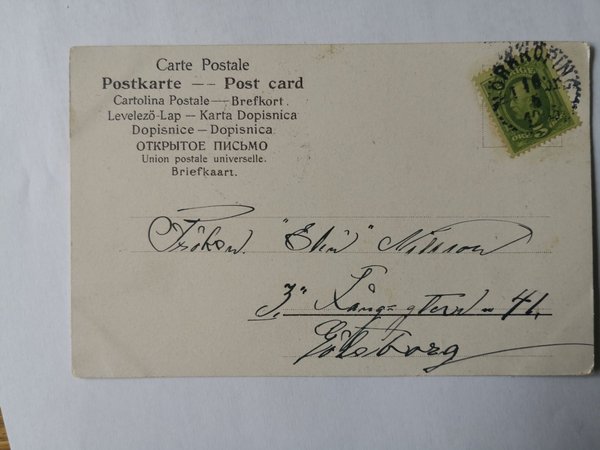 Carte Postale
Postkarte — Post card
Cartolina Postale — Brefkort.
Levelező-Lap — Karta Dopisnica
Dopisnice — Dopisnica
ОТКРЫТОЕ ПИСЬМО
Union postale universelle.
Briefkaart.
NORRKÖPING
Fröken. "Elin" Nilsson
41.
Göteborg